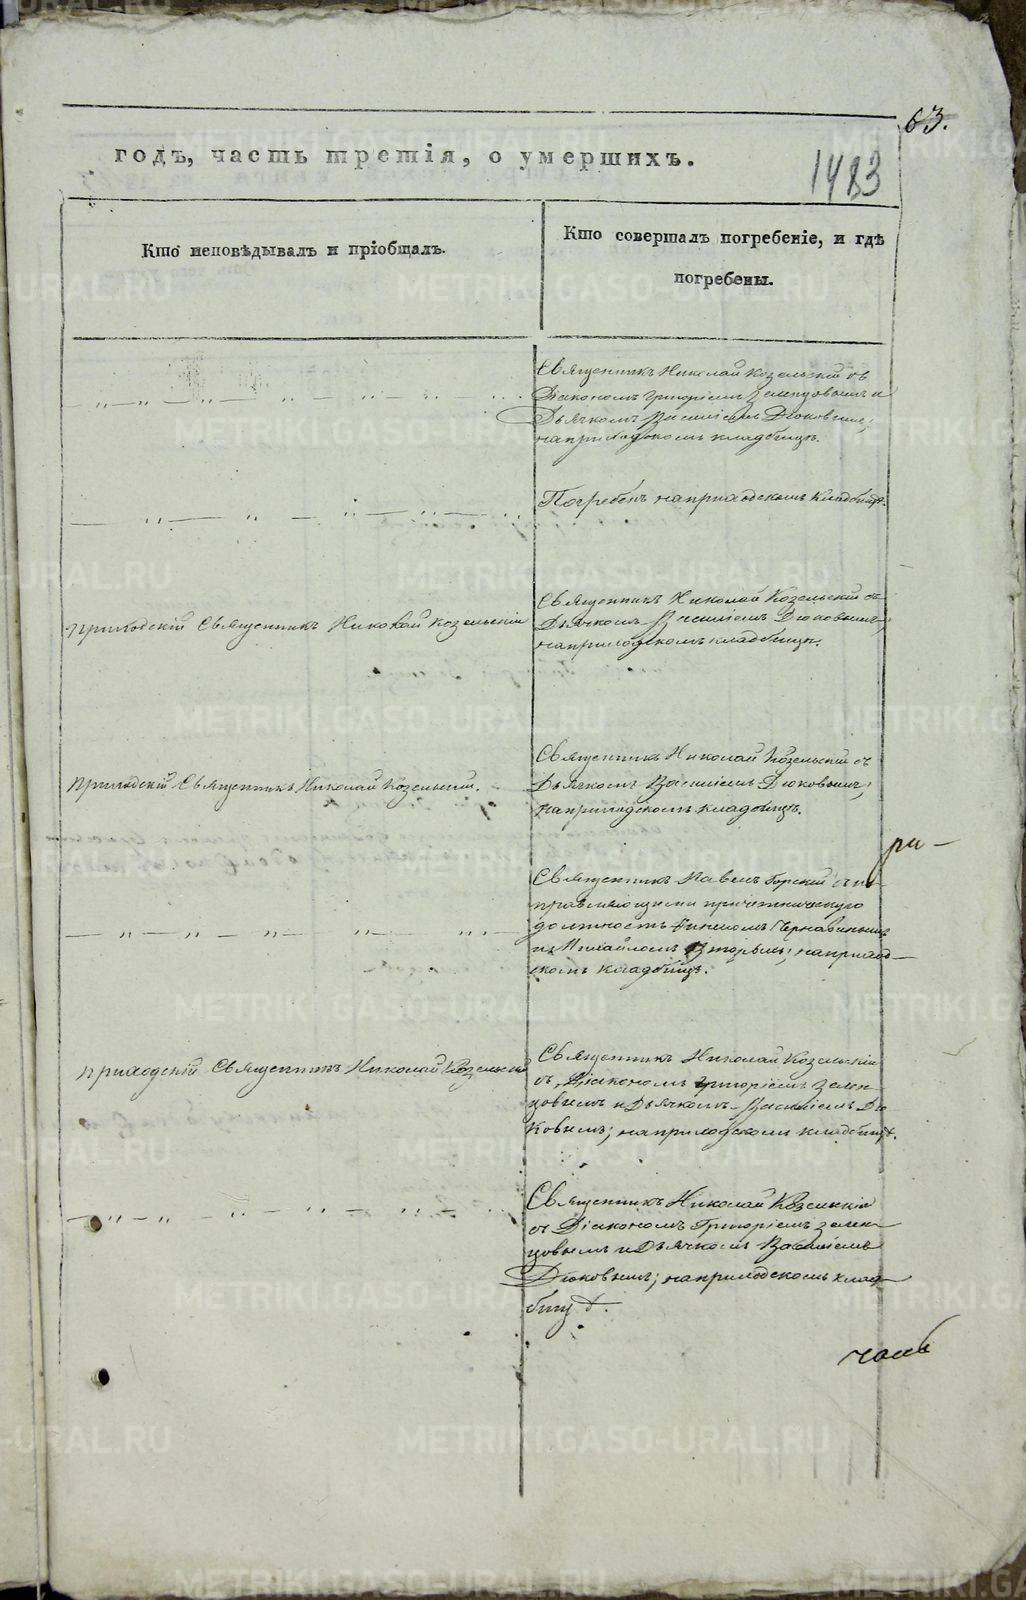 63.
годъ, часть третія, о умершихъ.
1483
Кто исповѣдывалъ и пріобщалъ.
Кто совершалъ погребеніе, и гдѣ
погребены.
Священникъ Николай Козельскій съ
Діакономъ Григоріемъ Зеленцовымъ и
Дьячкомъ Василіемъ Дюковымъ;
наприходскомъ кладбищѣ.
Погребенъ наприходскомъ кладбищѣ.
Приходскій Священникъ Николай Козельскій
Священникъ Николай Козельскій съ
Дьячкомъ Василіемъ Дюковымъ;
наприходскомъ кладбищѣ.
Приходскій Священникъ Николай Козельскій.
Священникъ Николай Козельскій съ
Дьячкомъ Василіемъ Дюковымъ;
наприходскомъ кладбищѣ.
ри-
Священникъ Павелъ Горскій съ ис-
правляющими причетническую
должность
и Михайломъ наприход-
скомъ кладбищѣ.
Приходскій Священникъ Николай Козельскій
Священникъ Николай Козельскій
съ Діакономъ Григоріемъ Зелен-
цовымъ и Дьячкомъ Василіемъ Дю
ковымъ; наприходскомъ кладбищѣ.
Священникъ Николай Козельскій
съ Діакономъ Григоріемъ Зелен-
цовымъ и Дьячкомъ Василіемъ
Дюковымъ; наприходскомъ клад-
бищѣ.
METRIKI.GASO-URAL.RU